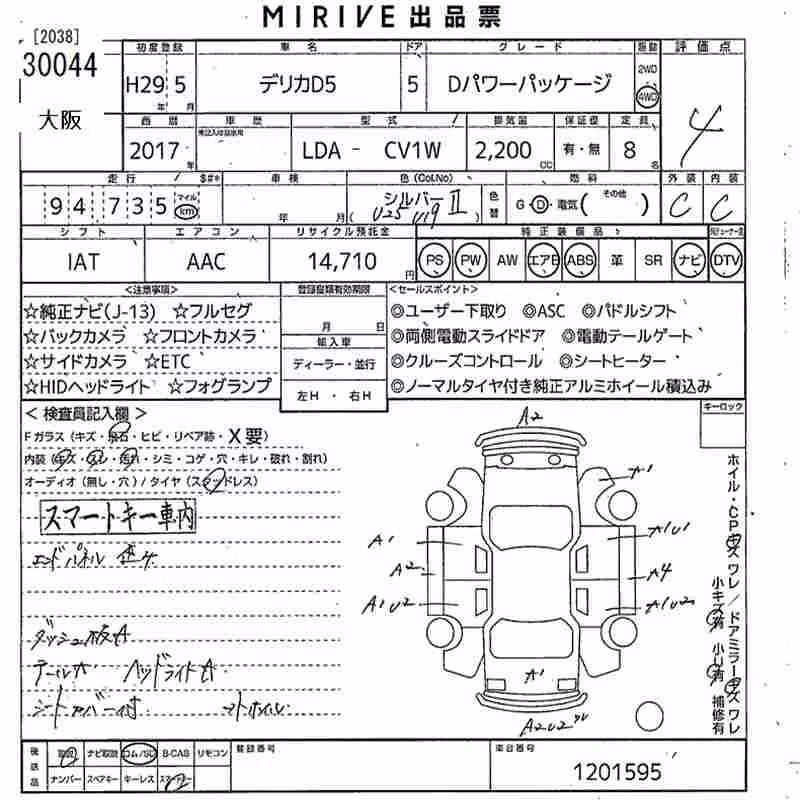 MIRIVE出品票
[2038]
30044
大阪
初度登録 車名 ドア グレード 駆動 評価点
H29年 5月 デリカD5 5 Dパワーパッケージ 2WD 4WD 4
西暦 車歴 型式 排気量 保証書 定員
2017年 LDA - CV1W 2,200CC 有・無 8名
走行 $#* 車検 色(Col.No) 燃料 外装 内装
94,735 マイル km 年 月 シルバーII (U25 U19) 色替 G・D・電気( その他 ) C C
シフト エアコン リサイクル預託金 純正装備品
IAT AAC 14,710円 PS PW AW エアB ABS 革 SR ナビ DTV
<注意事項> 登録書類有効期限 <セールスポイント>
☆純正ナビ(J-13) ☆フルセグ 月 日 ◎ユーザー下取り ◎ASC ◎パドルシフト
☆バックカメラ ☆フロントカメラ 輸入車 ◎両側電動スライドドア ◎電動テールゲート
☆サイドカメラ ☆ETC ディーラー・並行 ◎クルーズコントロール ◎シートヒーター
☆HIDヘッドライト ☆フォグランプ 左H・右H ◎ノーマルタイヤ付き純正アルミホイール積込み
<検査員記入欄> キーロック
Fガラス(キズ・飛石・ヒビ・リペア跡・X要)
内装(キズ・コレ・汚れ・シミ・コゲ・穴・キレ・破れ・割れ)
オーディオ(無し・穴)/タイヤ(スタッドレス)
スマートキー車内
エンドパネル
ダッシュ板A
テールA ヘッドライトA
シートカバー付
A2
A1
A1U1
A1
A2
A4
A1U2
A1U2
A1
A2U2
ホイル・CPキズワレ/ドアミラーキズワレ
小キズ有 小U有 補修有
後送品 取説 ナビ取説 ロム/SD B-CAS リモコン 登録番号 車台番号
ナンバー スペアキー キーレス スマートキー 1201595